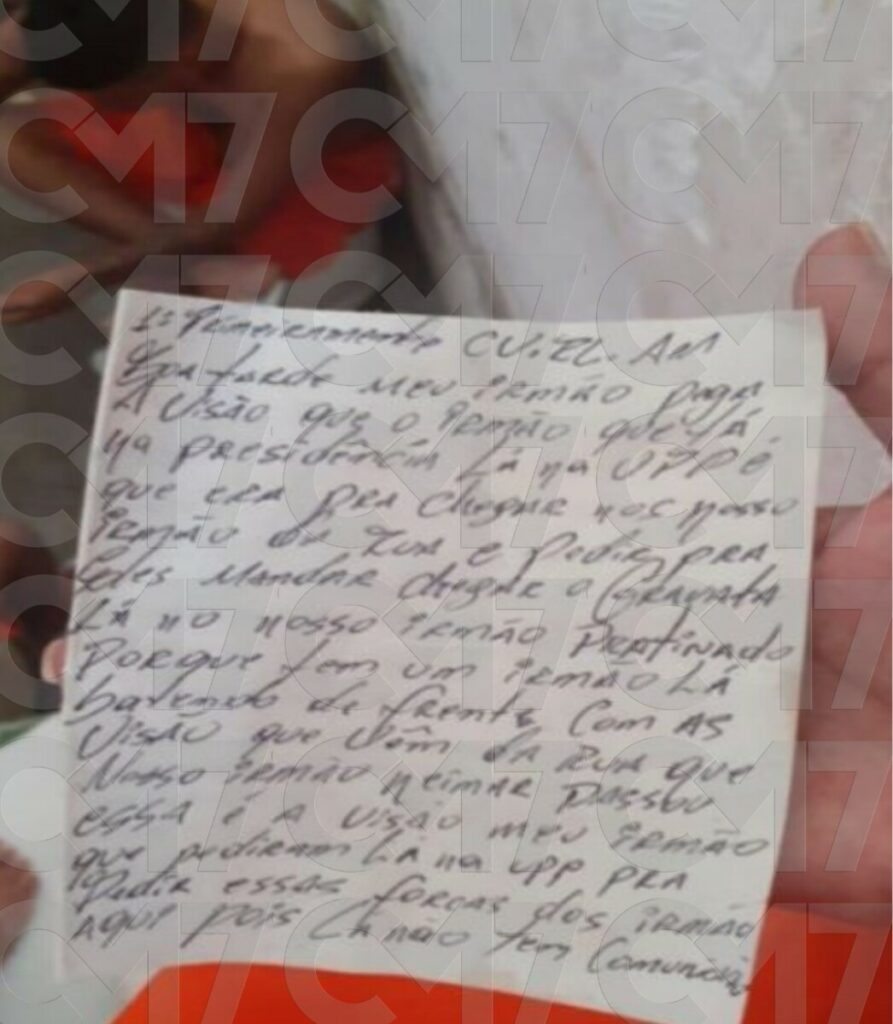 1: Primeiramente CV.RL.AM
Boa tarde meu irmão paga
A visão que o irmão que tá
na presidência Lá na UPP é
que era pra chegar nos nosso
irmão da Rua e pedir pra
eles mandar chegar o Gravata
Lá no nosso irmão Pratinado
Porque tem um irmão Lá
batendo de frente com as
visão que vêm da Rua que
Nosso irmão neimar passou
essa é a visão meu irmão
que pediram Lá na UPP PRA
Pedir essas forças dos irmão
Aqui pois Lá não tem
CM7